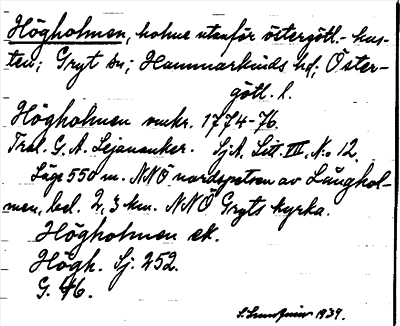 Högholmen, holme utanför östergötl. kus-
ten; Gryt sn; Hammarkinds hd; Öster-
götl. l.
Högholmen omkr. 1774-76.
Trol. G. A. Lejonanker. Sj A. Litt. III, No 12.
Läge 550 m. NNÖ nordspetsen av Långhol-
men, bel. 2,3 km. NNÖ Gryts kyrka.
Högholmen ek.
Högh. Sj. 252.
G. 46.
1939.